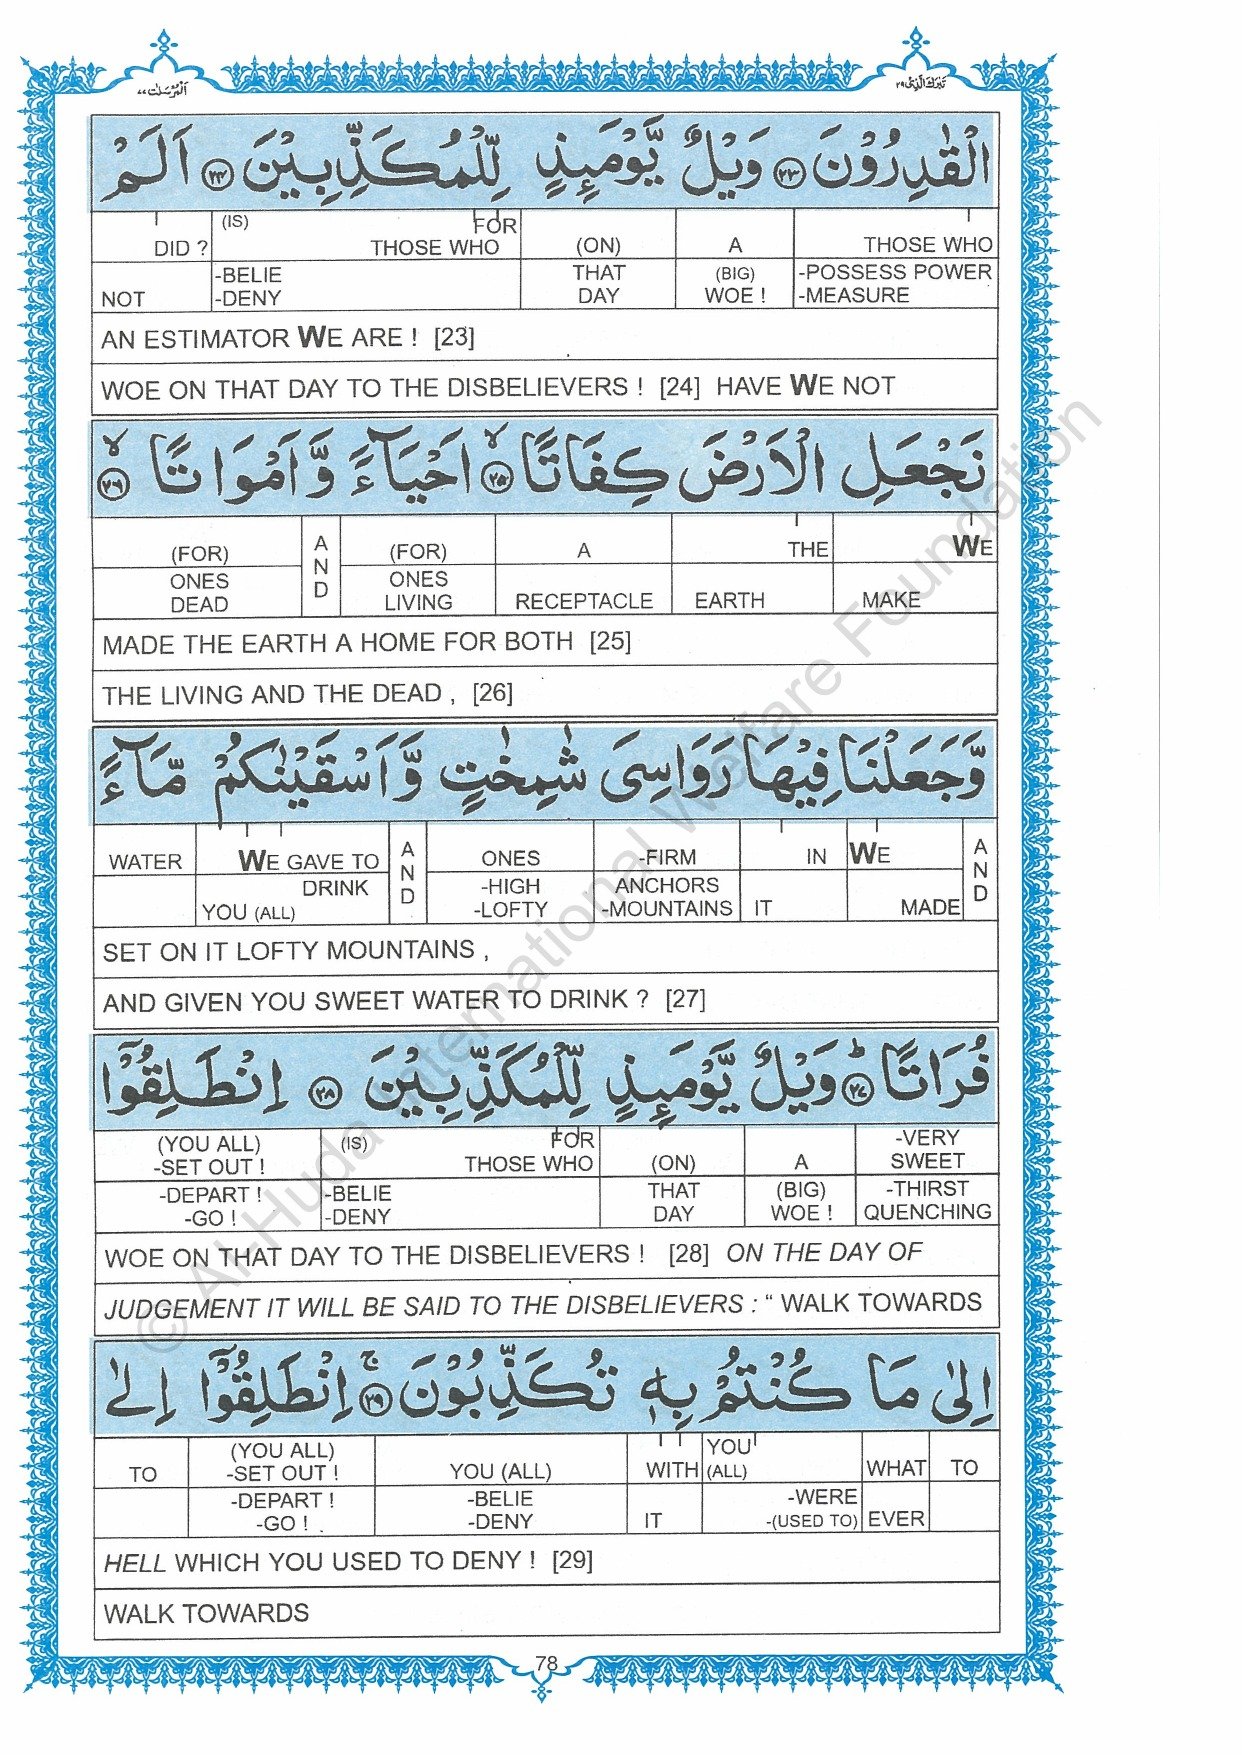 اَلْمُرْسَلٰت ٧٧
تَبٰرَكَ الَّذِىْ ٢٩
الْقٰدِرُوْنَ ٢٣ وَيْلٌ يَّوْمَئِذٍ لِّلْمُكَذِّبِيْنَ ٢٤ اَلَمْ
DID ? (IS) FOR THOSE WHO (ON) A THOSE WHO
NOT -BELIE -DENY THAT DAY (BIG) WOE ! -POSSESS POWER -MEASURE
AN ESTIMATOR WE ARE ! [23]
WOE ON THAT DAY TO THE DISBELIEVERS ! [24] HAVE WE NOT
نَجْعَلِ الْاَرْضَ كِفَاتًا ٢٥ۙ اَحْيَآءً وَّاَمْوَاتًا ٢٦ۙ
(FOR) AND (FOR) A THE WE
ONES DEAD ONES LIVING RECEPTACLE EARTH MAKE
MADE THE EARTH A HOME FOR BOTH [25]
THE LIVING AND THE DEAD , [26]
وَّجَعَلْنَا فِيْهَا رَوَاسِىَ شٰمِخٰتٍ وَّاَسْقَيْنٰكُمْ مَّآءً
WATER WE GAVE TO AND ONES -FIRM IN WE AND
DRINK YOU (ALL) -HIGH -LOFTY ANCHORS -MOUNTAINS IT MADE
SET ON IT LOFTY MOUNTAINS ,
AND GIVEN YOU SWEET WATER TO DRINK ? [27]
فُرَاتًا ٢٧ؕ وَيْلٌ يَّوْمَئِذٍ لِّلْمُكَذِّبِيْنَ ٢٨ اِنْطَلِقُوْٓا
(YOU ALL) -SET OUT ! (IS) FOR THOSE WHO (ON) A -VERY SWEET
-DEPART ! -GO ! -BELIE -DENY THAT DAY (BIG) WOE ! -THIRST QUENCHING
WOE ON THAT DAY TO THE DISBELIEVERS ! [28] ON THE DAY OF
JUDGEMENT IT WILL BE SAID TO THE DISBELIEVERS : “ WALK TOWARDS
اِلٰى مَا كُنْتُمْ بِهٖ تُكَذِّبُوْنَ ٢٩ۚ اِنْطَلِقُوْٓا اِلٰى
TO (YOU ALL) -SET OUT ! YOU (ALL) WITH YOU (ALL) WHAT TO
-DEPART ! -GO ! -BELIE -DENY IT -WERE -(USED TO) EVER
HELL WHICH YOU USED TO DENY ! [29]
WALK TOWARDS
78
© Al-Huda International Welfare Foundation